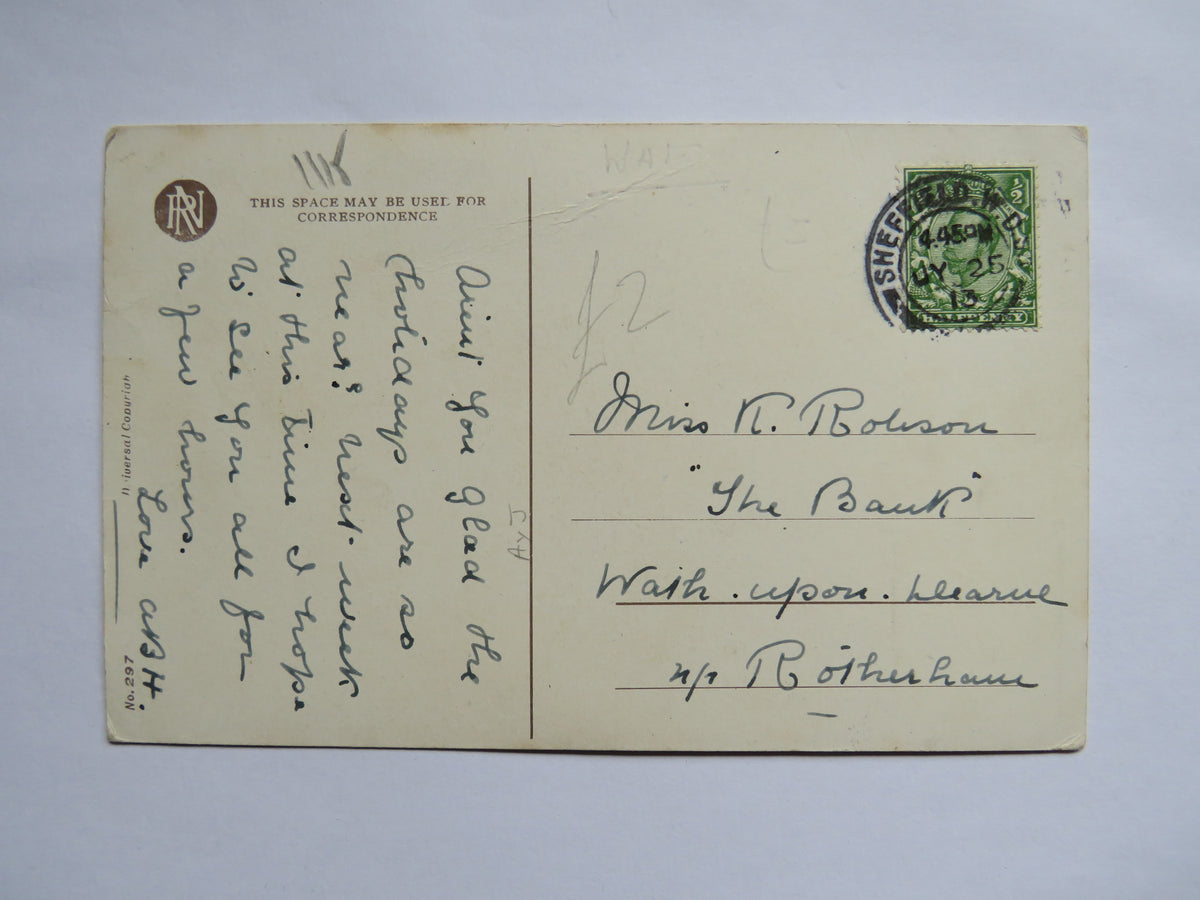 RN
THIS SPACE MAY BE USED FOR
CORRESPONDENCE
Aint you glad the
holidays are so
near? Next week
at this time I hope
to see you all for
a few hours.
Love ABH.
Universal Copyright
No. 297
WAT
£2
AYJ
SHEFFIELD. W.D.
4.45PM
JY 25
13
½
HALFPENNY
Miss K. Robson
"The Bank"
Wath. upon. Dearne
n/r Rotherham